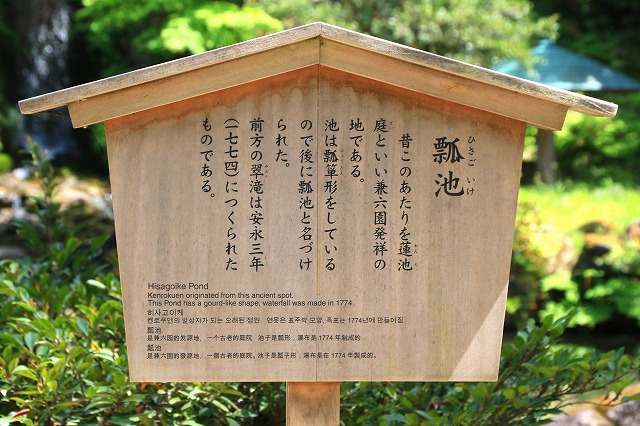 瓢池
ひさご いけ
昔このあたりを蓮池
庭といい兼六園発祥の
地である。
池は瓢箪形をしている
ので後に瓢池と名づけ
られた。
前方の翠滝は安永三年
(一七七四)につくられた
ものである。
Hisagoike Pond
Kenrokuen originated from this ancient spot.
This Pond has a gourd-like shape, waterfall was made in 1774.
히사고이케
켄로쿠엔의 발상지가 되는 오래된 정원 연못은 표주박 모양, 폭포는 1774년에 만들어짐
瓢池
是兼六园的发源地，一个古老的庭院 池子是瓢形，瀑布是 1774 年制成的
瓢池
是兼六園的發源地，一個古老的庭院。池子是瓢子形，瀑布是在 1774 年製成的。